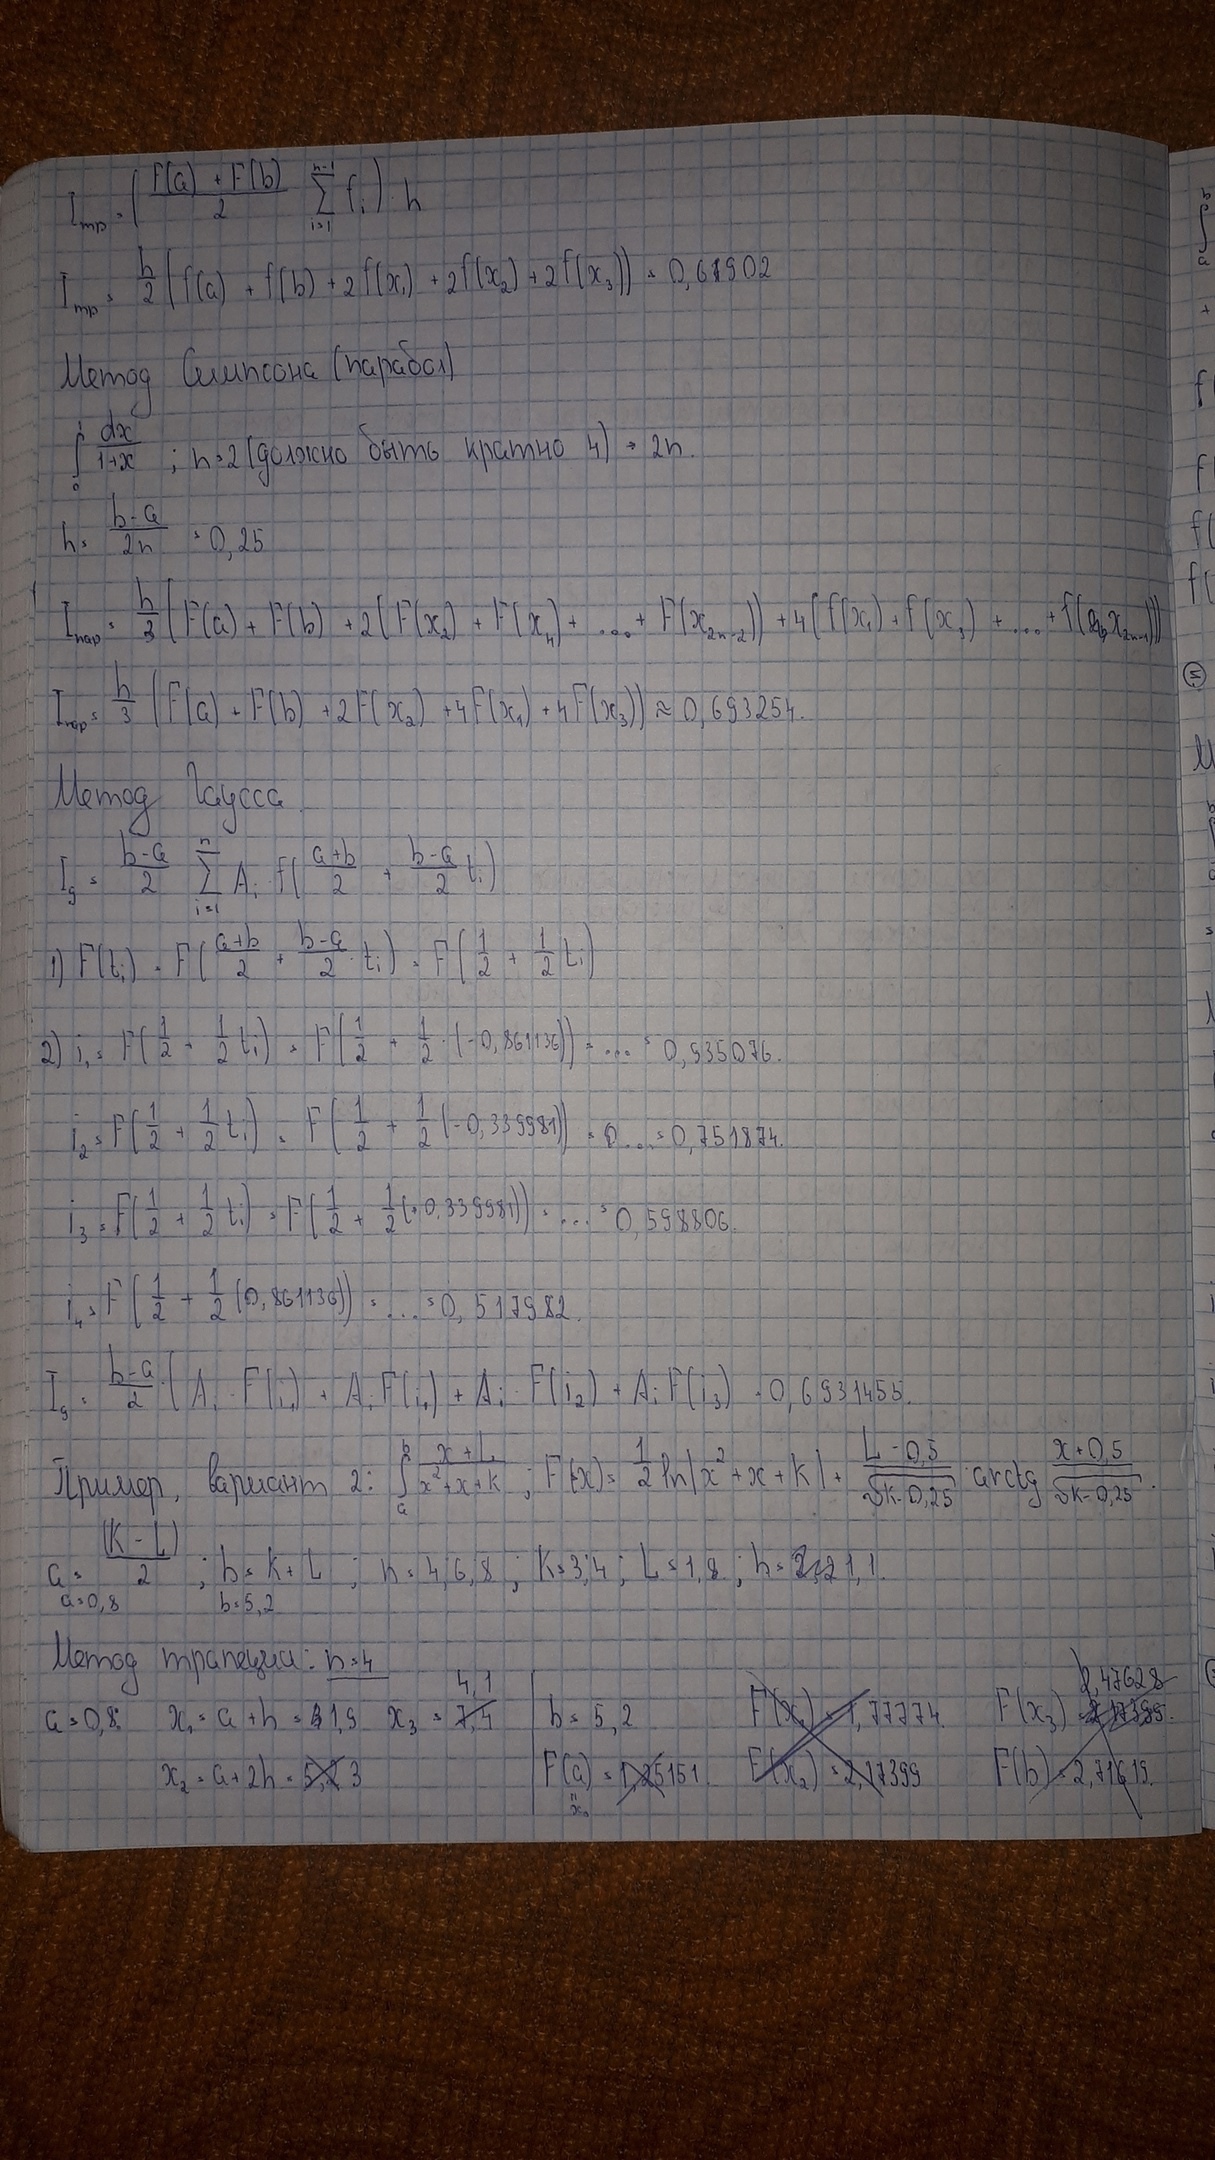 Iтр = (F(a) + F(b) / 2 ∑ i=1 n-1 fi) · h
Iтр = h/2 (f(a) + f(b) + 2f(x₁) + 2f(x₂) + 2f(x₃)) = 0,61902
Метод Симпсона (парабол)
∫₀¹ dx/1+x ; n=2 (должно быть кратно 4) → 2n.
h = b-a/2n = 0,25
Iпар = h/3 (F(a) + F(b) + 2(F(x₂) + F(x₄) + ... + F(x₂ₙ₋₂)) + 4(f(x₁) + f(x₃) + ... + f(x₂ₙ₋₁)))
Iпар = h/3 (F(a) + F(b) + 2F(x₂) + 4F(x₁) + 4F(x₃)) ≈ 0,693254.
Метод Гаусса
Ig = b-a/2 ∑ i=1 n Ai · f(a+b/2 + b-a/2 ti)
1) F(ti) = F(a+b/2 + b-a/2 · ti) = F(1/2 + 1/2 ti)
2) i₁ = F(1/2 + 1/2 ti) = F(1/2 + 1/2 · (-0,861136)) = ... = 0,935076.
i₂ = F(1/2 + 1/2 ti) = F(1/2 + 1/2 (-0,339981)) = 0... = 0,751874.
i₃ = F(1/2 + 1/2 ti) = F(1/2 + 1/2 (+0,339981)) = ... = 0,598806.
i₄ = F(1/2 + 1/2 (0,861136)) = ... = 0,517982.
Ig = b-a/2 · (Ai · F(i₁) + Ai F(i₄) + Ai · F(i₂) + Ai F(i₃)) = 0,6931455.
Пример, вариант 2: ∫ₐᵇ x+L/x²+x+k ; F(x) = 1/2 ln|x²+x+k| + L-0,5/√k-0,25 · arctg x+0,5/√k-0,25.
a = (K-L)/2 ; b = K+L ; n = 4,6,8 ; K=3,4 ; L=1,8 ; h = 1,1.
a=0,8 b=5,2
Метод трапеции: n=4
a=0,8 x₁ = a+h = 1,9 x₃ = 7,4 4,1 b = 5,2 F(x₁) = 1,77774. F(x₃) = 2,17399. 2,47628
x₂ = a+2h = 3 F(a) = 1,25151. F(x₂) = 2,17399 F(b) = 2,71619.
x₀